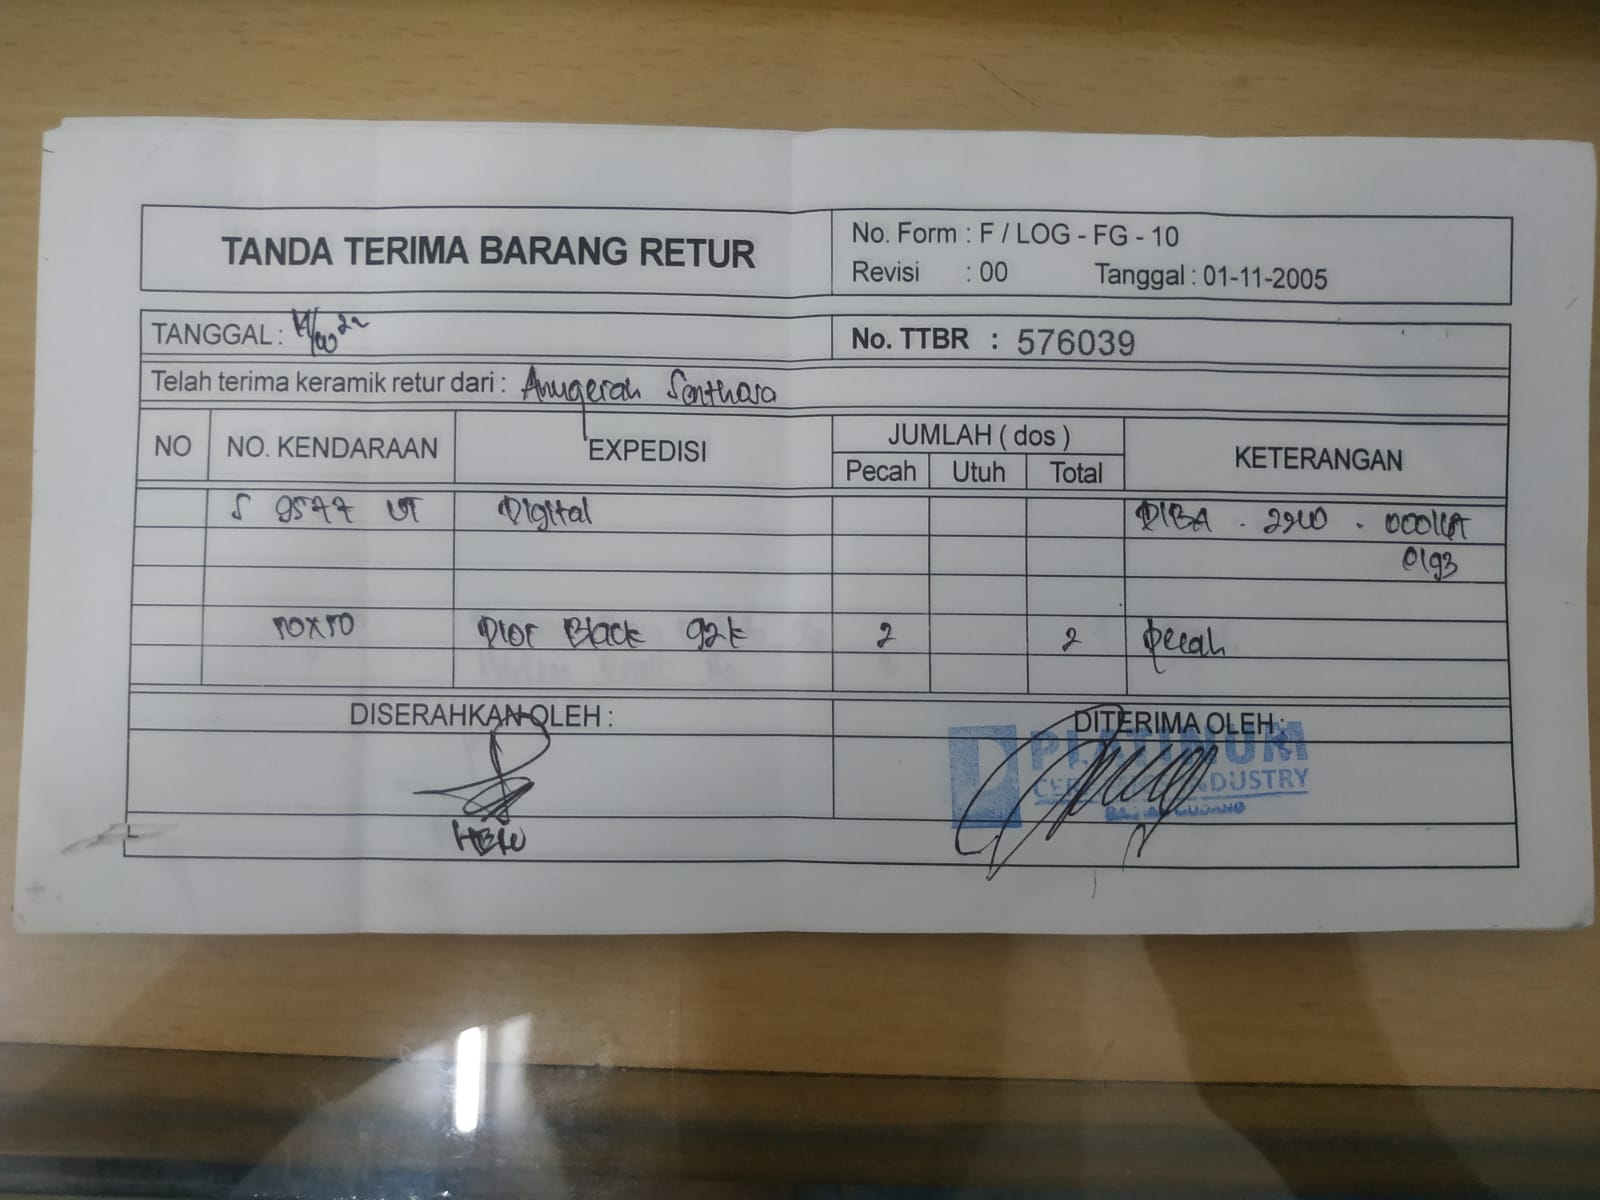 TANDA TERIMA BARANG RETUR
No. Form : F / LOG - FG - 10
Revisi : 00 Tanggal : 01-11-2005
TANGGAL :
No. TTBR : 576039
Telah terima keramik retur dari : Anugerah Senthosa
NO NO. KENDARAAN EXPEDISI JUMLAH ( dos ) KETERANGAN
Pecah Utuh Total
S 9577 UT Digital DIBA . 2210 .
0193
50x50 Dior Black 92k 2 2 pecah
DISERAHKAN OLEH :
DITERIMA OLEH :
PLATINUM
CERAMICS INDUSTRY
HERU